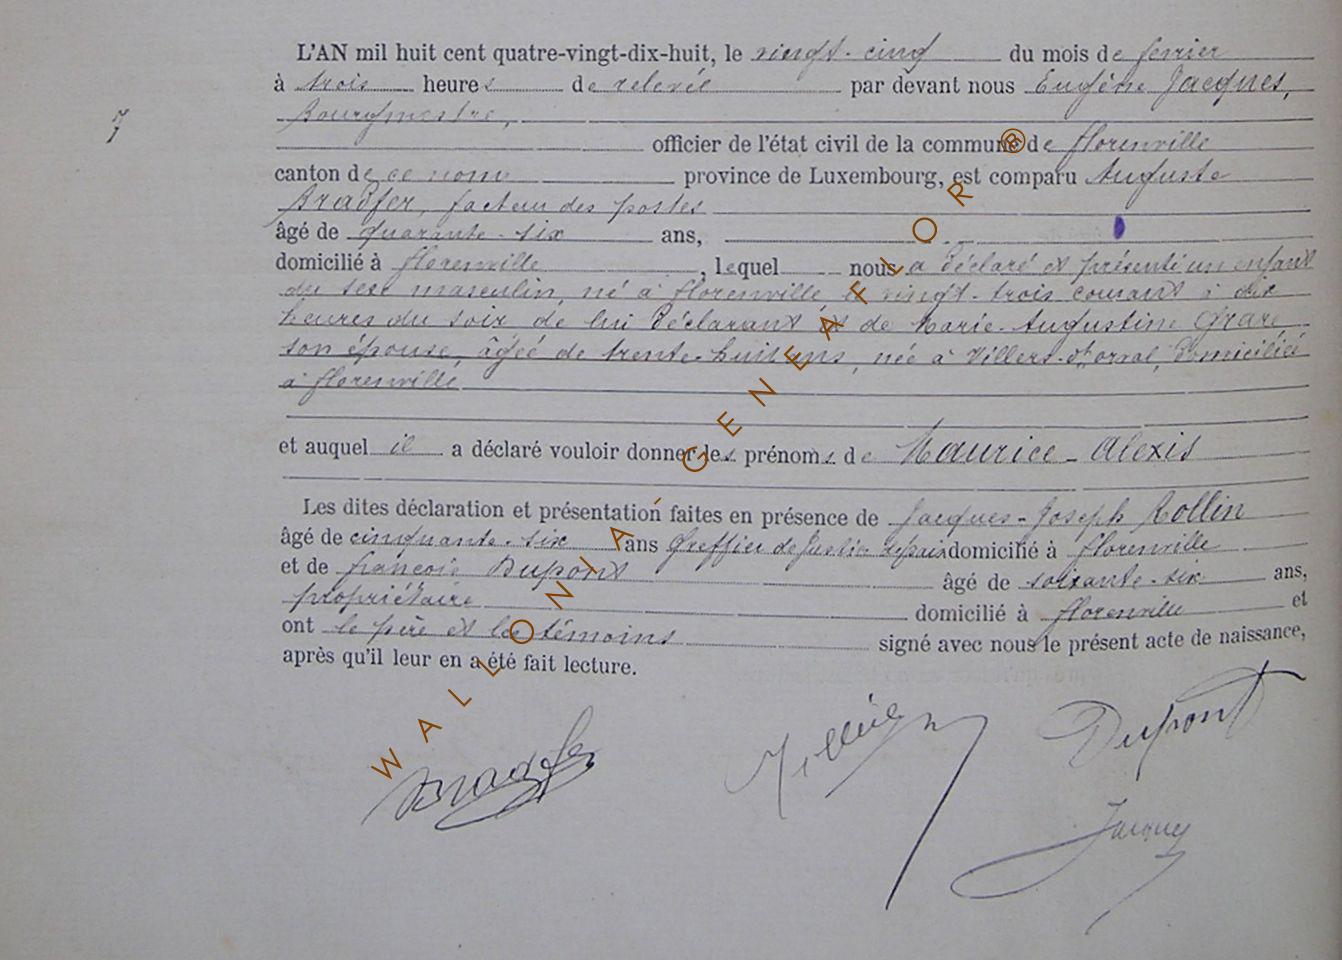 L'AN mil huit cent quatre-vingt-dix-huit, le vingt-cinq du mois de fevrier
à trois heures de relevée par devant nous Eugène Jacques,
7 Bourgmestre,
officier de l'état civil de la commune de florenville
canton de ce nom province de Luxembourg, est comparu Auguste
Bradfer, facteur des postes
âgé de quarante-six ans,
domicilié à florenville, lequel nous a déclaré et présenté un enfant
du sexe masculin, né à florenville, le vingt-trois courant à dix
heures du soir, de lui déclarant et de Marie-Augustine Graré
son épouse, âgée de trente-huit ans, née à Villers-dt orval, domiciliée
à florenville
et auquel il a déclaré vouloir donner les prénoms de Maurice-Alexis
Les dites déclaration et présentation faites en présence de Jacques-Joseph Rollin
âgé de cinquante-six ans Greffier de Justice de paix domicilié à florenville
et de françois Dupont âgé de soixante-six ans,
propriétaire domicilié à florenville et
ont le père et les témoins signé avec nous le présent acte de naissance,
après qu'il leur en a été fait lecture.
Bradfer Dupont
Jacques
WALLONIA-GENEAFLOR®